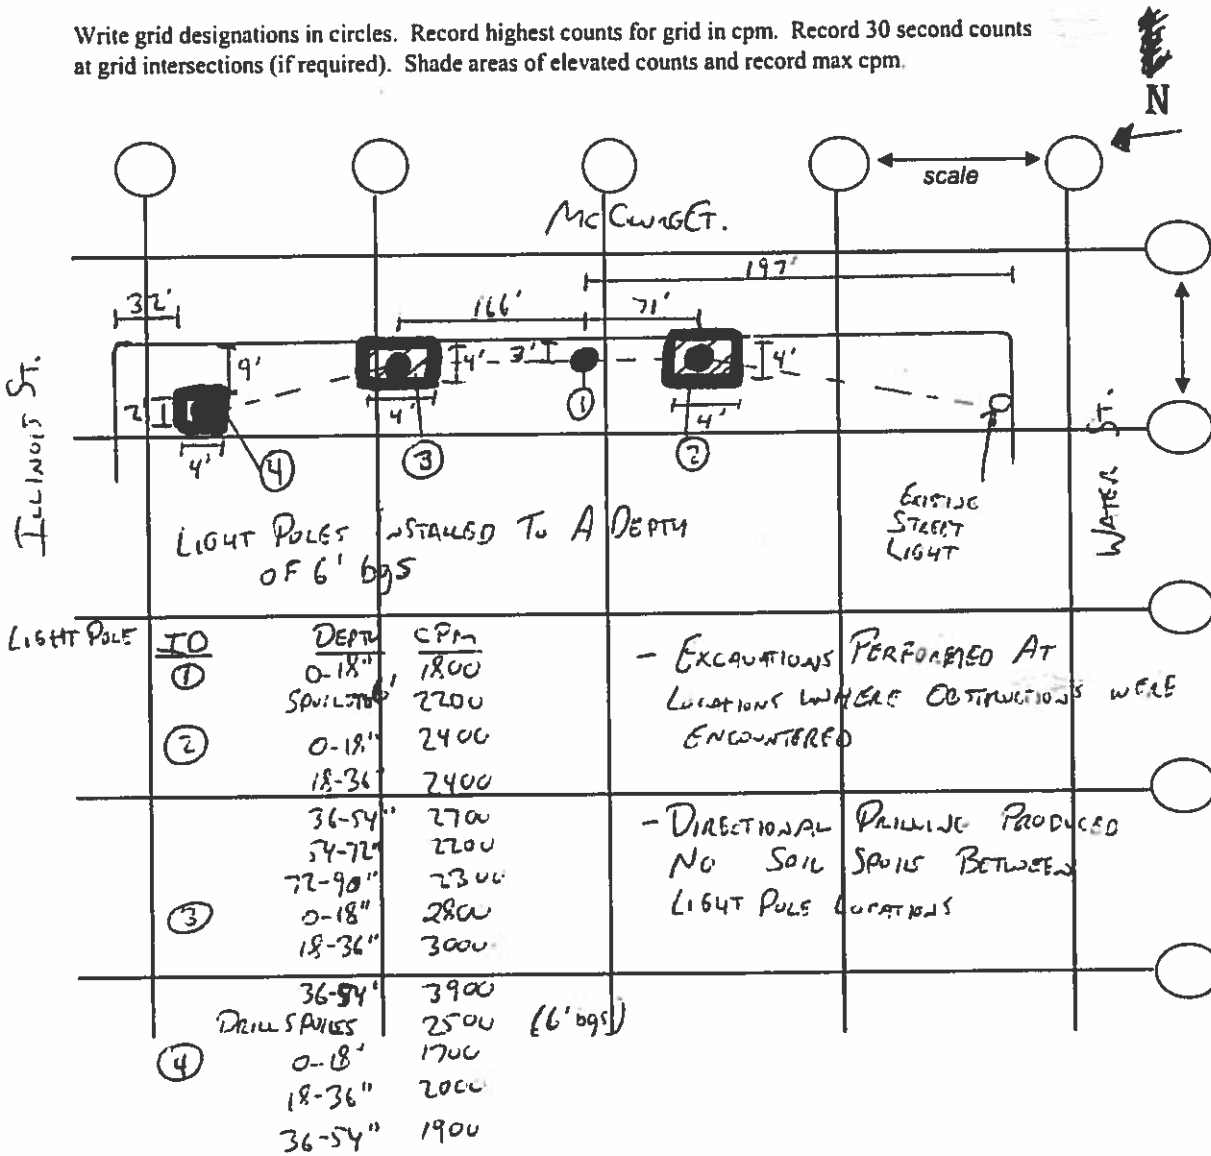 Write grid designations in circles. Record highest counts for grid in cpm. Record 30 second counts
at grid intersections (if required). Shade areas of elevated counts and record max cpm.
N
scale
McClurg Ct.
197'
32'
166'
71'
9'
4'
3'
4'
2'
4'
4'
4'
1
2
3
4
ILLINOIS ST.
WATER ST.
EXISTING
STREET
LIGHT
LIGHT POLES INSTALLED TO A DEPTH
OF 6' bgs
LIGHT POLE ID DEPTH CPM
1 0-18" 1800
SPOILS 6' 2200
2 0-18" 2400
18-36" 2400
36-54" 2700
54-72" 2200
72-90" 2300
3 0-18" 2800
18-36" 3000
36-54" 3900
DRILL SPOILS 2500 (6' bgs)
4 0-18" 1700
18-36" 2000
36-54" 1900
- EXCAVATIONS PERFORMED AT
LOCATIONS WHERE OBSTRUCTIONS WERE
ENCOUNTERED
- DIRECTIONAL DRILLING PRODUCED
NO SOIL SPOILS BETWEEN
LIGHT POLE LOCATIONS